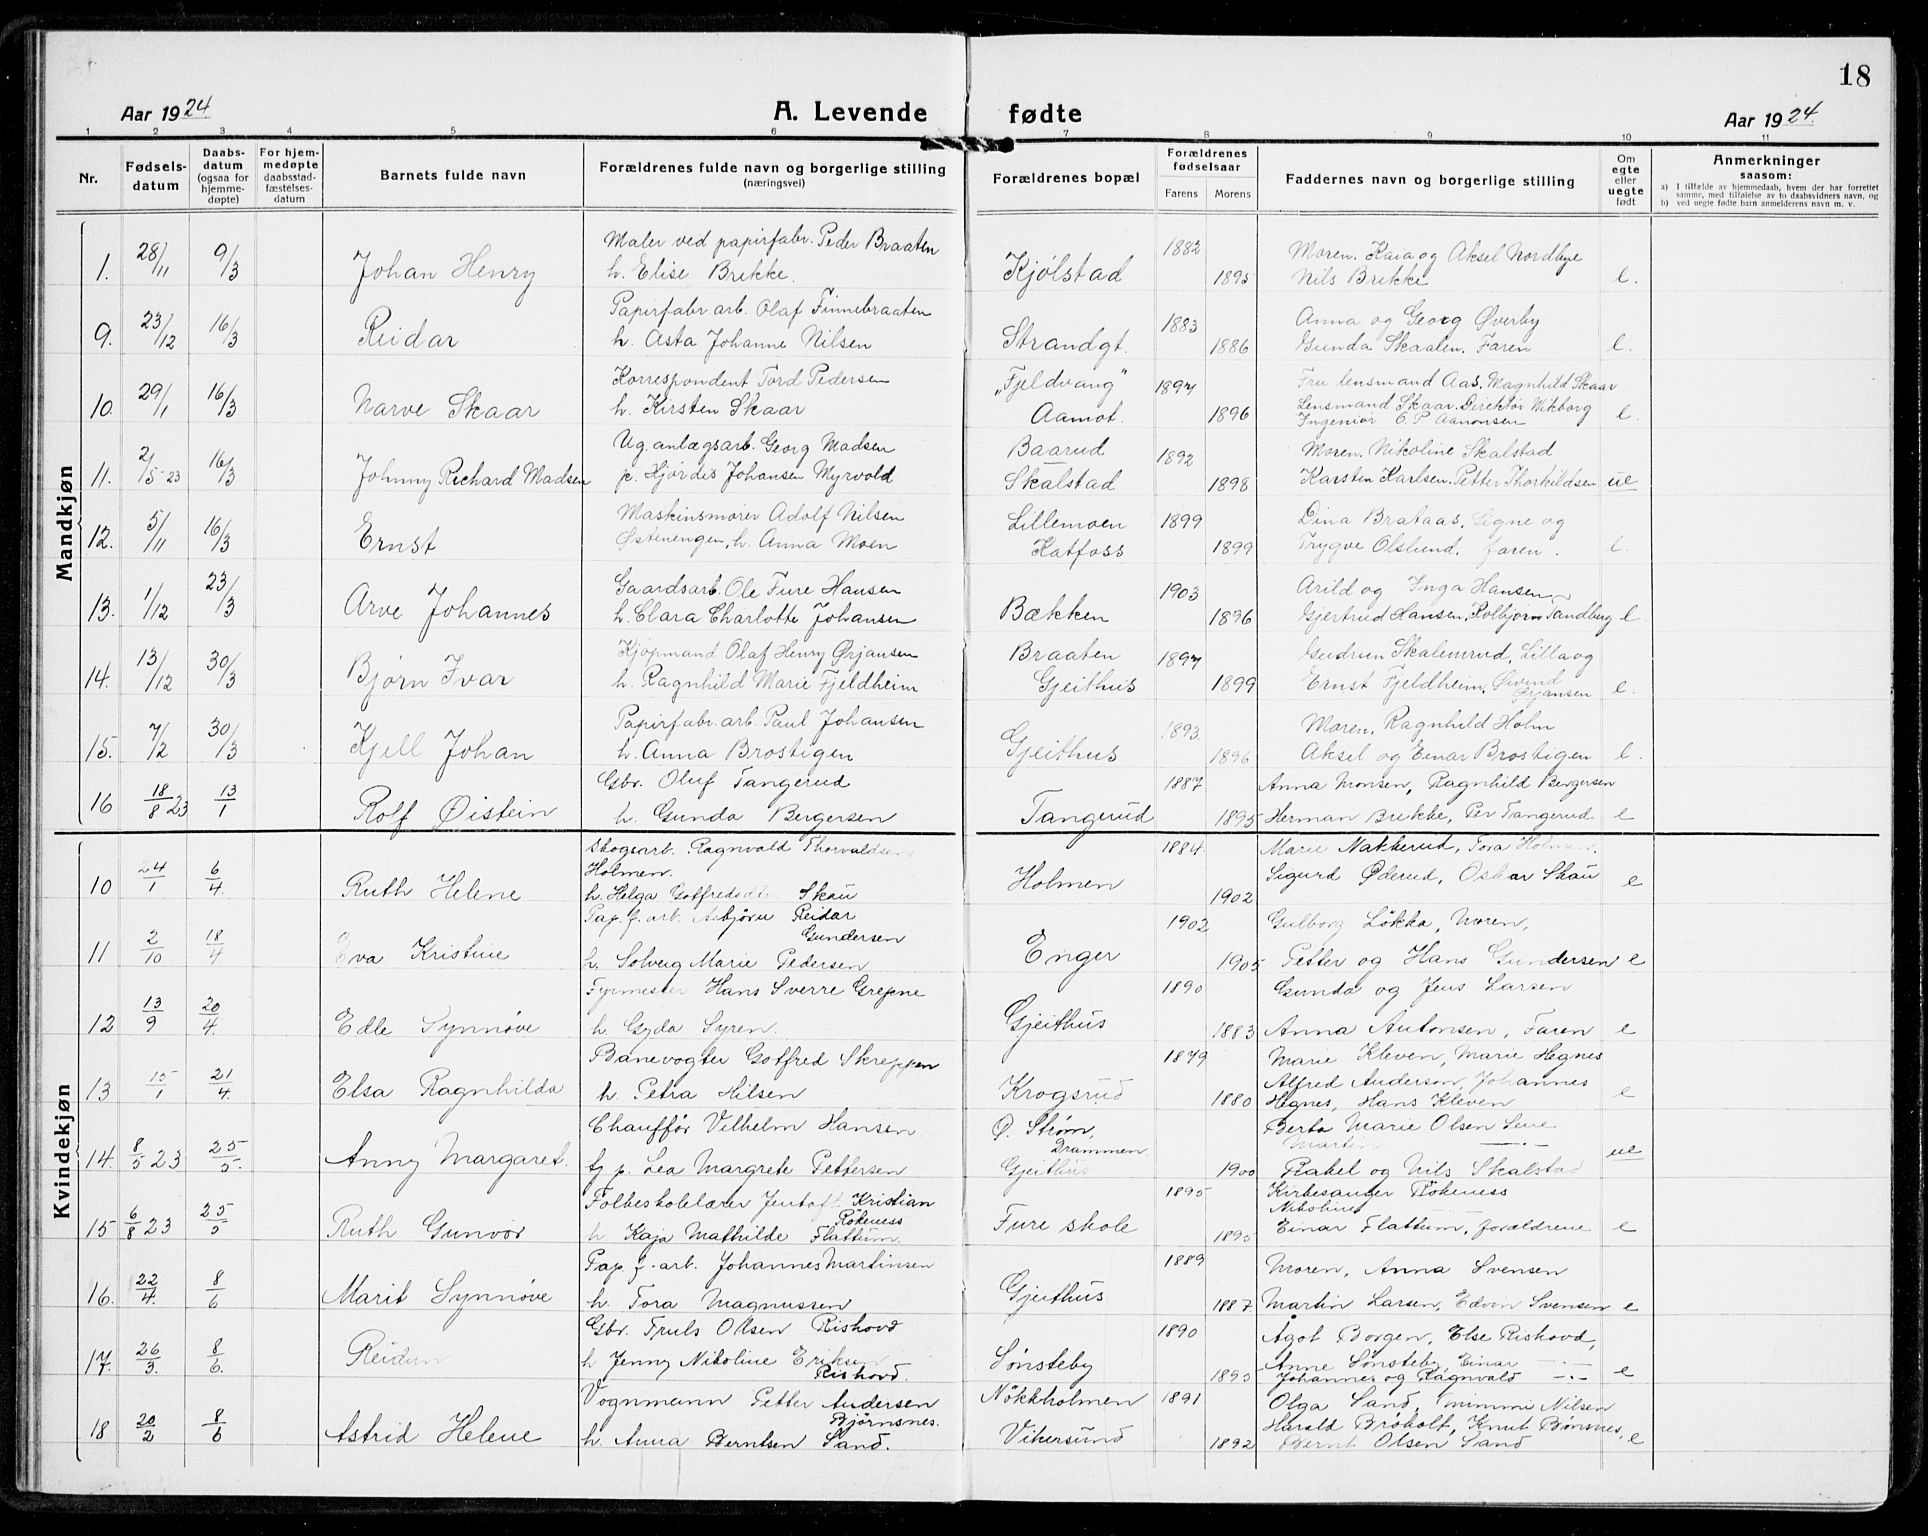 18
Aar 1924. A. Levende fødte Aar 1924.
1 2 3 4 5 6 7 8 9 10 11
Nr. Fødselsdatum Daabsdatum (ogsaa for hjemmedøpte) For hjemmedøpte daabsstadfæstelsesdatum Barnets fulde navn Forældrenes fulde navn og borgerlige stilling (næringsvei) Forældrenes bopæl Forældrenes fødselsaar Farens Morens Faddernes navn og borgerlige stilling Om egte eller uegte født Anmerkninger saasom:
a) I tilfælde av hjemmedaab, hvem der har forrettet samme, med tilføielse av to daabsvidners navn, og
b) ved uegte fødte barn anmelderens navn m. v.
Mandkjøn
Maler ved papirfabr. Peder Braaten 1882 Moren. Kaia og Aksel Nordbye
1. 28/11 9/3 Johan Henry h. Elise Brekke. Kjølstad 1895 Nils Brekke e.
Papirfabr. arb. Olaf Finnebraaten 1883 Anna og Georg Øverby
9. 23/12 16/3 Reidar h. Asta Johanne Nilsen Strandgt. 1886 Gunda Skaalen. Faren e.
Korrespondent Tord Pedersen „Fjeldvang" 1897 Fru lensmand Aas. Magnhild Skaar
10. 29/1 16/3 Narve Skaar h. Kirsten Skaar Aamot. 1896 Lensmand Skaar. Direktør Wikborg
Ingeniør C. P. Aanonsen e.
Ug. anlægsarb. Georg Madsen Baarud 1892 Moren. Nikoline Skalstad
11. 2/5-23 16/3 Johnny Richard Madsen p. Hjørdis Johansen Myrvold Skalstad 1898 Karsten Karlsen. Petter Thorkildsen ue
Maskinsmører Adolf Nilsen Lillemoen 1899 Dina Brataas. Signe og
12. 5/11 16/3 Ernst Østenengen, h. Anna Moen Katfoss 1899 Trygve Olslund. faren. e.
Gaardsarb. Ole Fure Hansen 1903 Arild og Inga Hansen
13. 1/12 23/3 Arve Johannes h. Clara Charlotte Johansen Bækken 1896 Gjertrud Hansen, Kolbjørn Sandberg e
Kjøpmand Olaf Henry Ørjansen Braaten 1897 Gudrun Skalerud, Lilla og
14. 13/12 30/3 Bjørn Ivar h. Ragnhild Marie Fjeldheim Gjeithus 1899 Ernst Fjeldheim, Øivind Ørjansen e.
Papirfabr. arb. Paul Johansen 1893 Moren, Ragnhild Holm
15. 7/2 30/3 Kjell Johan h. Anna Brostigen Gjeithus 1896 Aksel og Einar Brostigen e.
Gbr. Oluf Tangerud 1887 Anna Monsen, Ragnhild Bergersen
16 18/8 23 13/1 Rolf Øistein h. Gunda Bergersen Tangerud 1895 Herman Brekke, Per Tangerud e
Kvindekjøn
Skogsarb. Ragnvald Thorvaldsen 1884 Marie Nakkerud, Tora Holmen.
Holmen. Sigurd Øderud, Oskar Skau
10 24/1 6/4. Ruth Helene h. Helga Gotfredsdtr Skau Holmen 1902 e
Pap. f. arb. Asbjørn Reidar 1902 Gulborg Løkka, Moren,
Gundersen
11 2/10 18/4 Eva Kristine h. Solveig Marie Pedersen Enger 1905 Petter og Hans Gundersen e
Fyrmester Hans Sverre Grejne 1890 Gunda og Jens Larsen
12 13/9 20/4. Edle Synnøve h. Gyda Syren. Gjeithus 1883 Anna Antonsen, Faren e
Banevogter Gotfred Skreppen 1879 Marie Kleven, Marie Hegnes
Alfred Anderson, Johannes
13 15/1 21/4. Elsa Ragnhilda h. Petra Hilsen Krogsrud 1880 Hegnes, Hans Kleven e
Chauffør Vilhelm Hansen Ø. Strøm, Drammen Berta Marie Olsen Lene
Martin —.—
14. 8/5 23 25/5. Anny Margaret. p. Lea Margrete Pettersen Gjeithus 1900 Rakel og Nils Skalstad ue
Folkeskolelærer Jentoft Kristian 1895 Kirkesanger Røkeness
Røkeness Nikoline
15 6/8 23 25/5 Ruth Gunvor h Kaja Mathilde Flattum Fure skole 1895 Einar Flattum, forældrene e
Pap. f. arb. Johannes Martinsen 1889 Moren, Anna Svensen
16. 22/4. 8/6 Marit Synnøve h. Tora Magnussen Gjeithus 1887 Martin Larsen, Edvin Svensen e
Gbr. Truls Olsen Rishovd 1890 Ågot Borgen, Else Rishovd,
Anne Sønsteby, Einar —.—
17. 26/3. 8/6. Reidun h Jenny Nikoline Eriksen Rishovd. Sønsteby 1895 Johannes og Ragnvald —.— e
Vognmann Petter Andersen Nökkholmen 1891 Olga Sand, Mimmi Nilsen
Bjørnsnes. Harald Brøholt, Knut Bønsnes,
18 20/2 8/6 Astrid Helene h. Anna Berntsen Sand. Vikersund 1892 Bernt Olsen Sand e